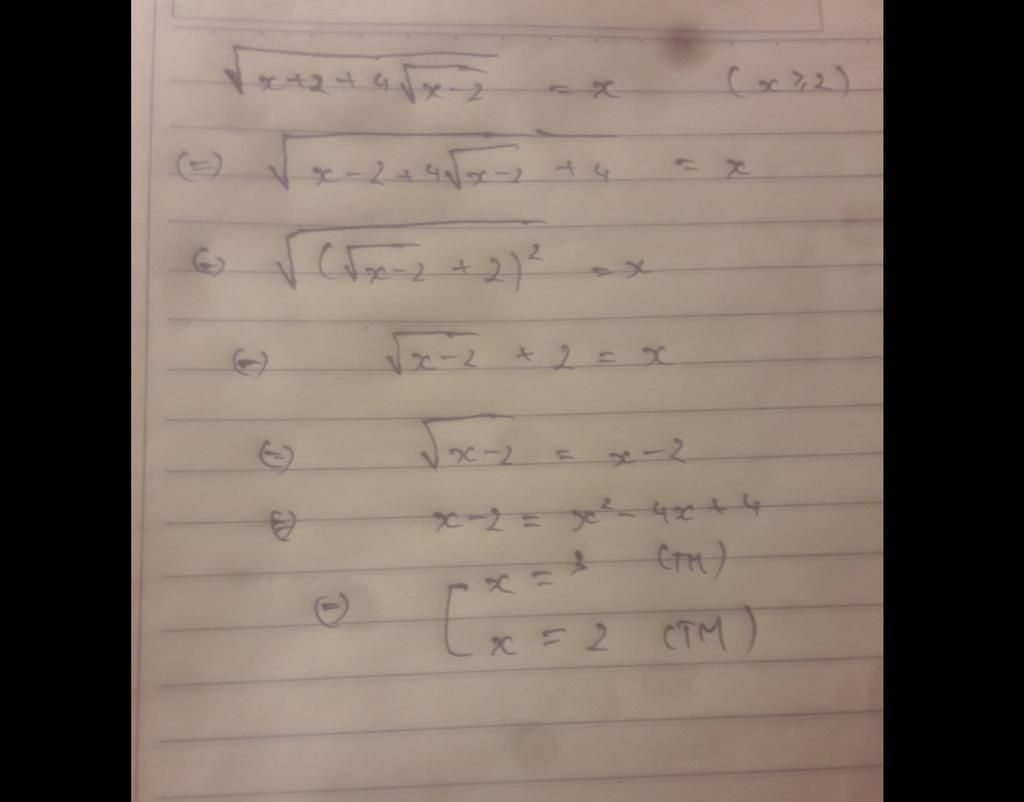 √(x+2+4√(x-2)) = x (x ≥ 2)
(=) √(x-2+4√(x-2) + 4) = x
(=) √((√(x-2) + 2)²) = x
(=) √(x-2) + 2 = x
(=) √(x-2) = x-2
(=) x-2 = x² - 4x + 4
(=) [ x = 3 (TM)
x = 2 (TM)